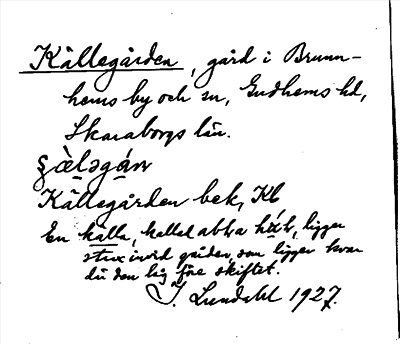 Källegården, gård i Brunn-
hems by och sn, Gudhems hd,
Skaraborgs län.
Källegården bek, Kb
En källa, kallad, ligger
strax invid gården, som ligger kvar
där den låg före skiftet.
J. Lundahl 1927.